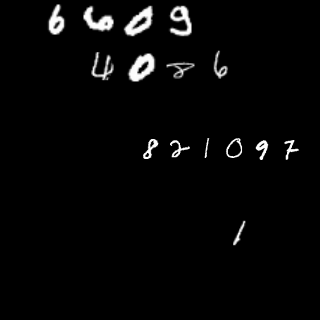 6609
4086
821097
1